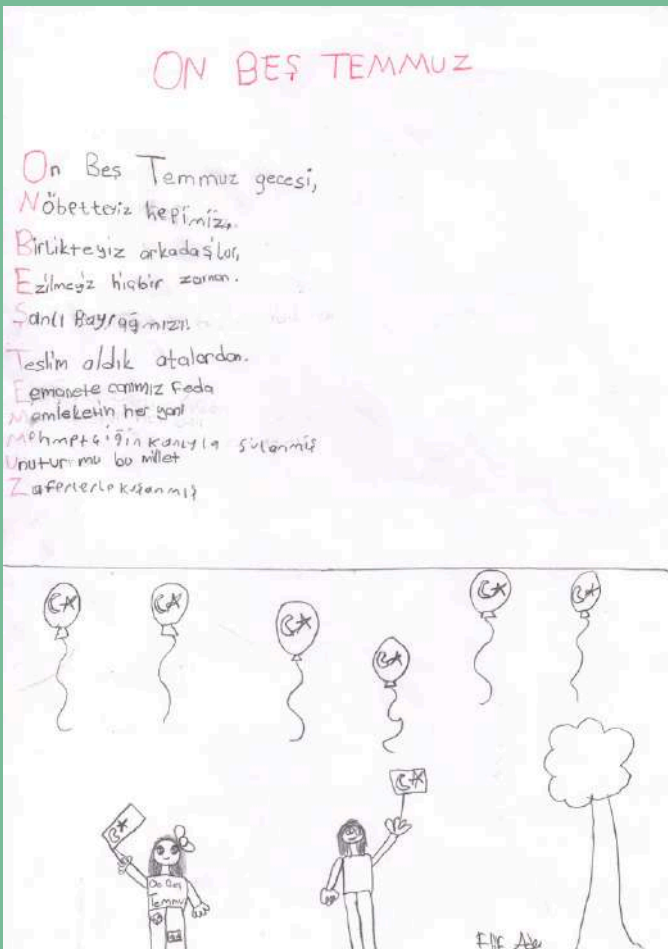 ON BEŞ TEMMUZ
On Beş Temmuz gecesi,
Nöbetteyiz hepimiz,
Birlikteyiz arkadaşlar,
Ezilmeyiz hiçbir zaman.
Şanlı Bayrağmızı
Teslim aldık atalardan.
Eemanete canımız Feda
Memleketin her yanı
Mehmetçiğin kanıyla sulanmış
Unutur mu bu millet
Zaferlerle kışanmış
On Beş
Temmu
Elif